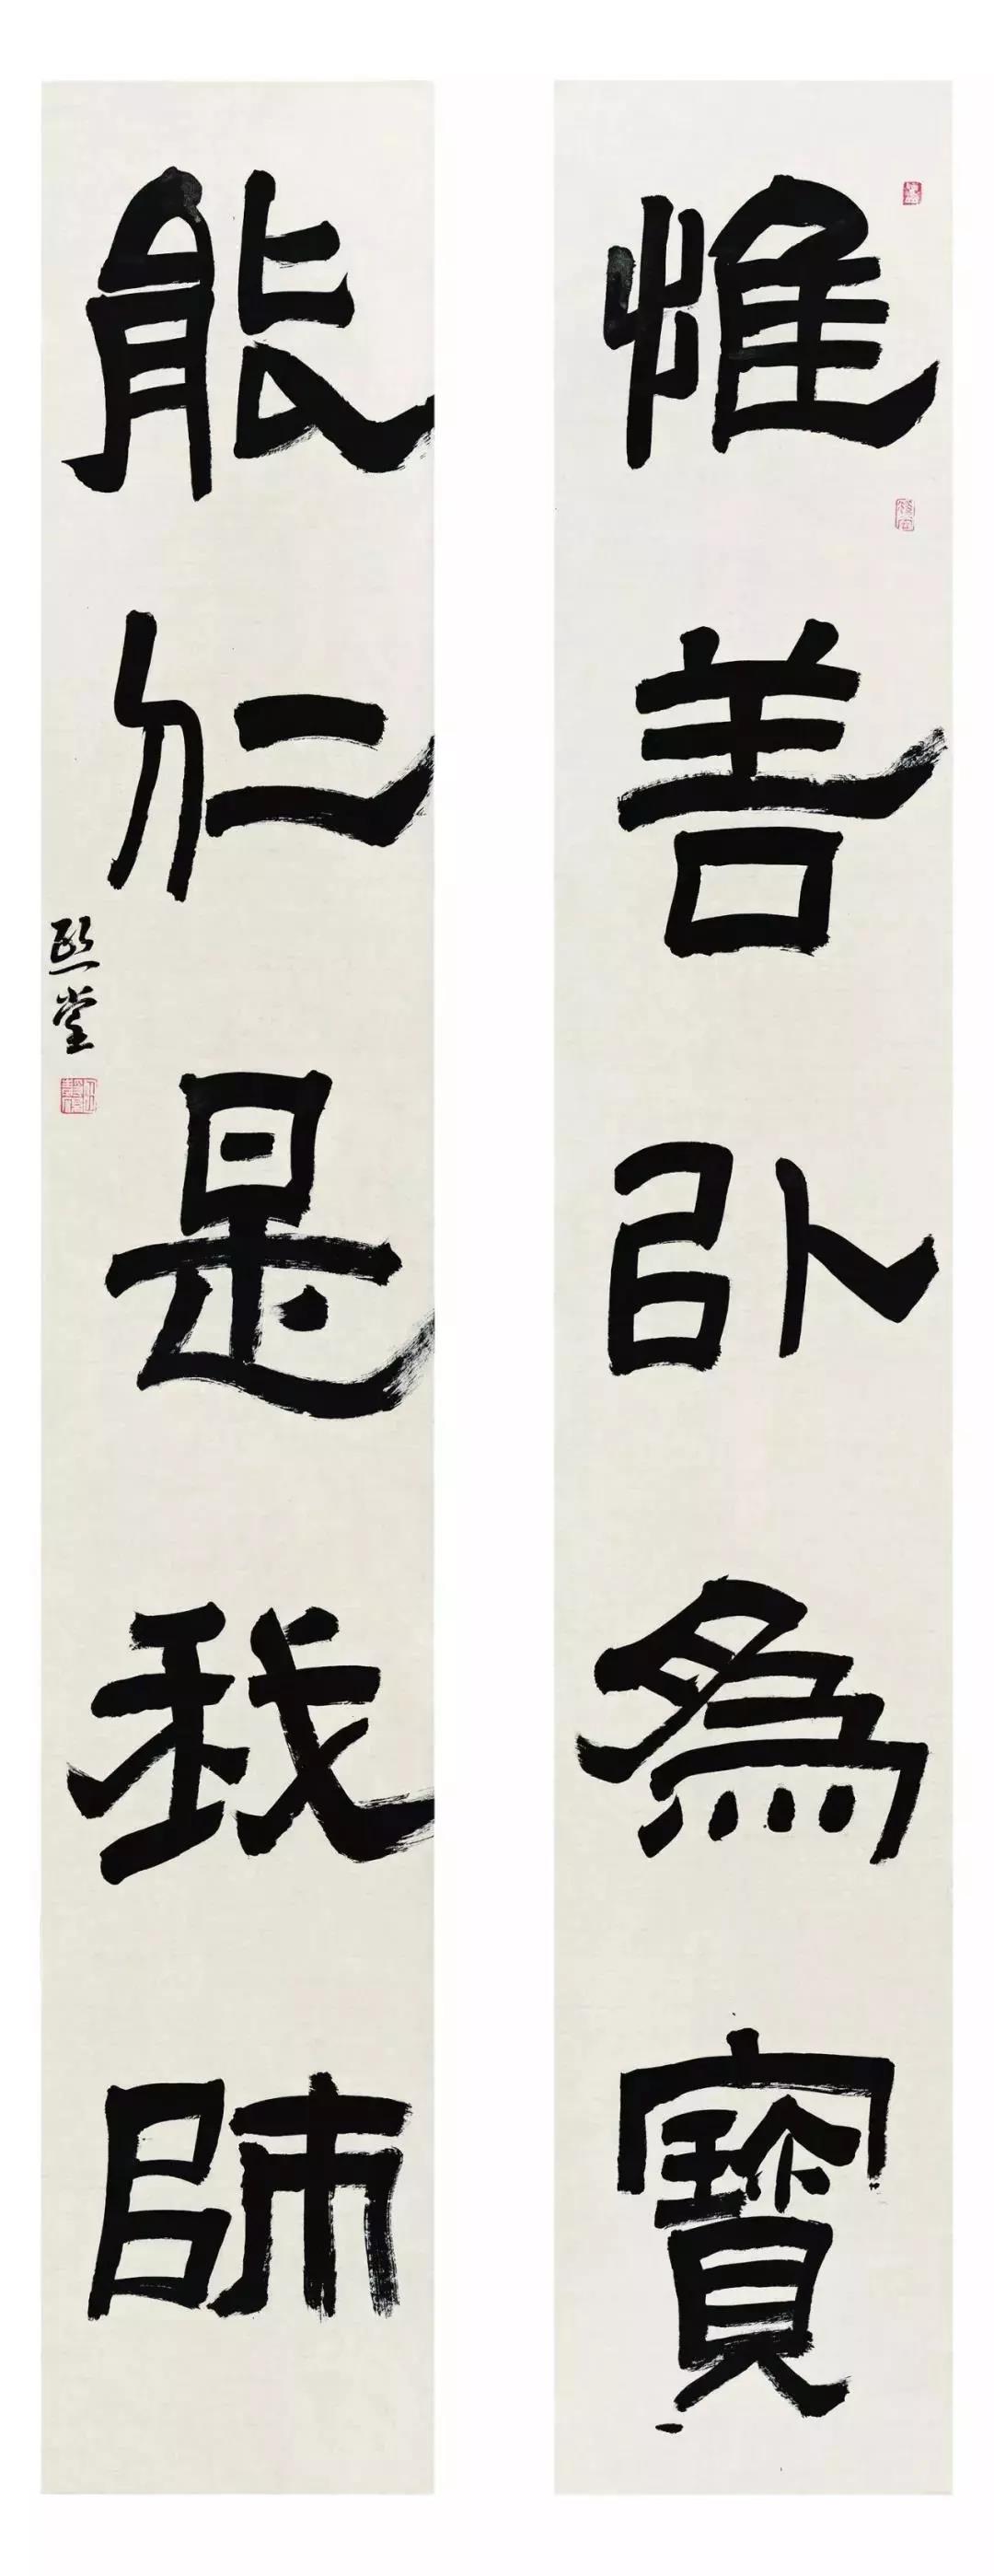 惟善以為寶
能仁是我師
熙堂